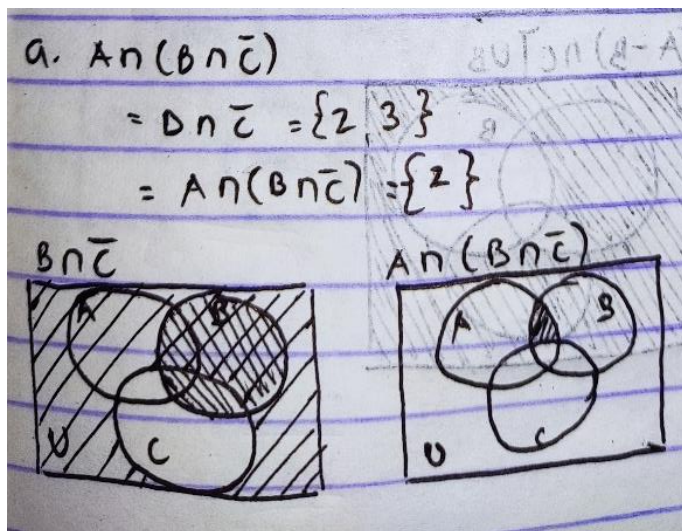 a. A∩(B∩C̅)
= B∩C̅ = {2,3}
= A∩(B∩C̅) = {2}
B∩C̅
A∩(B∩C̅)
A B
U C
A B
U C